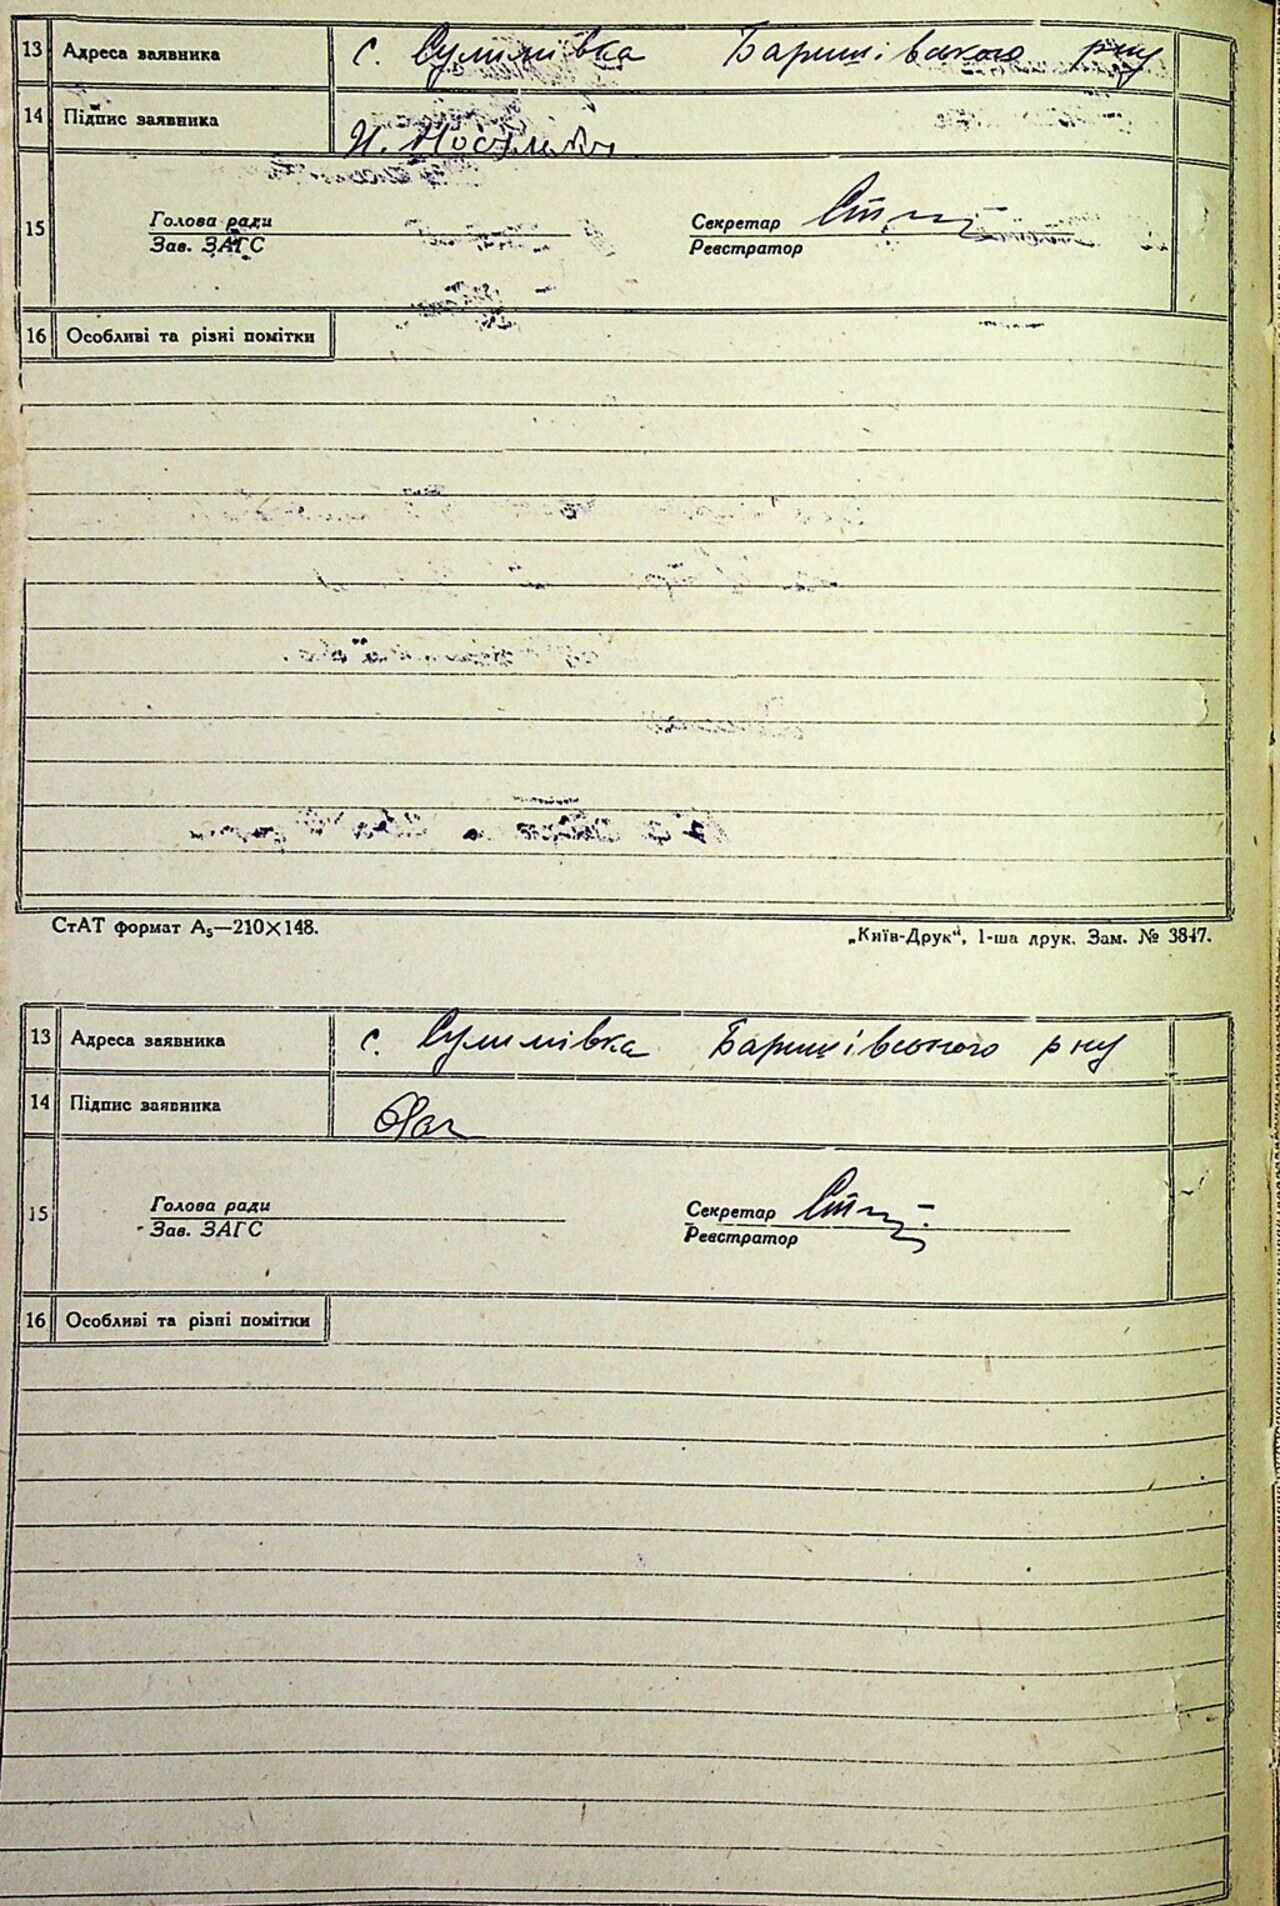 13 Адреса заявника с. Сулимівка Баришівського р-ну
14 Підпис заявника
15 Голова ради Секретар
Зав. ЗАГС Реєстратор
16 Особливі та різні помітки
СтАТ формат А₅—210×148. „Київ-Друк“, 1-ша друк. Зам. № 3847.
13 Адреса заявника с. Сулимівка Баришівського р ну
14 Підпис заявника
15 Голова ради Секретар
Зав. ЗАГС Реєстратор
16 Особливі та різні помітки